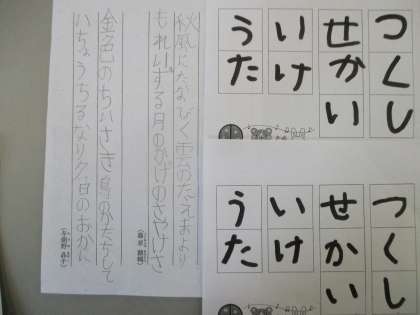 つくし
せかい
いけ
うた
つくし
せかい
いけ
うた
秋風にたなびく雲のたえまより
もれ出ずる月のかげのさやけさ
金色のちいさき鳥のかたちして
いちょうちるなり夕日のおかに
(与謝野 晶子)